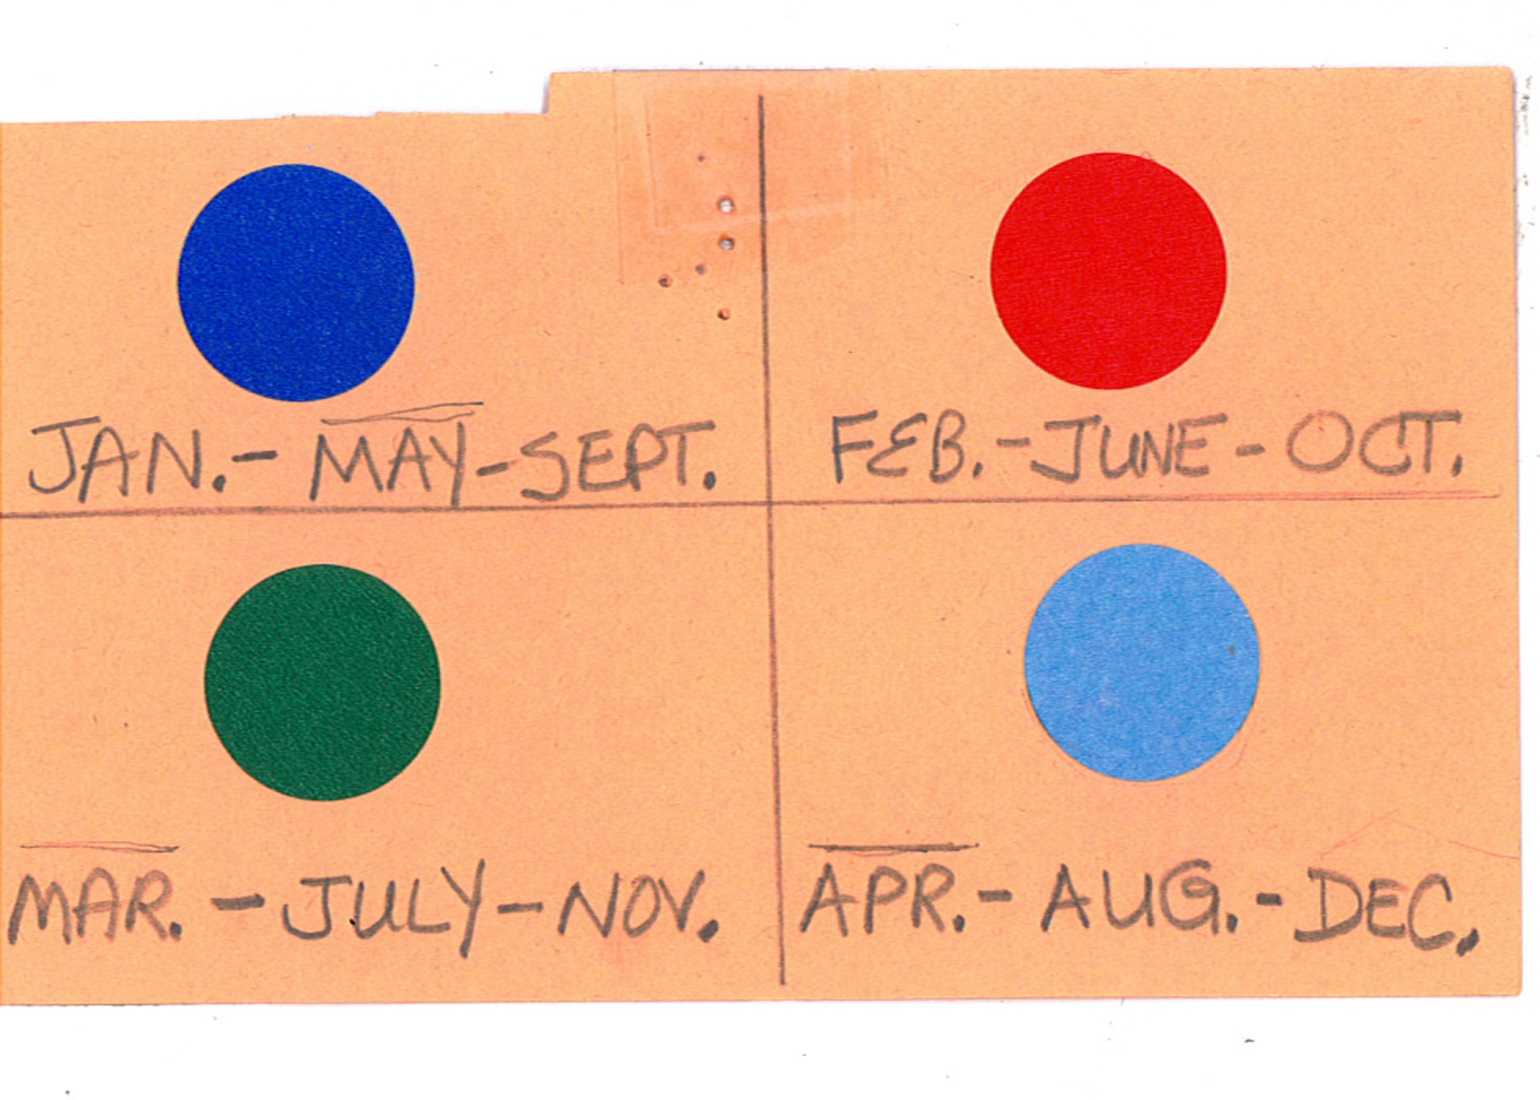 JAN.-MAY-SEPT.
FEB.-JUNE-OCT.
MAR.-JULY-NOV.
APR.-AUG.-DEC.